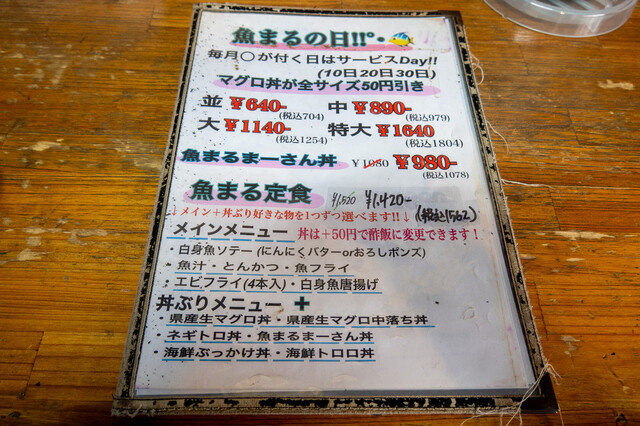 魚まるの日!!°・
毎月〇が付く日はサービスDay!!
(10日20日30日)
マグロ丼が全サイズ50円引き
並 ¥640- (税込704) 中 ¥890- (税込979)
大 ¥1140- (税込1254) 特大 ¥1640 (税込1804)
魚まるまーさん丼 ¥1080 ¥980- (税込1078)
魚まる定食 ¥1,520 ¥1,420-
↓メイン+丼ぶり好きな物を1つずつ選べます!!↓ (税込1562)
メインメニュー 丼は+50円で酢飯に変更できます!
・白身魚ソテー (にんにくバターorおろしポンズ)
・魚汁・とんかつ・魚フライ
・エビフライ(4本入)・白身魚唐揚げ
丼ぶりメニュー +
・県産生マグロ丼・県産生マグロ中落ち丼
・ネギトロ丼・魚まるまーさん丼
・海鮮ぶっかけ丼・海鮮トロロ丼